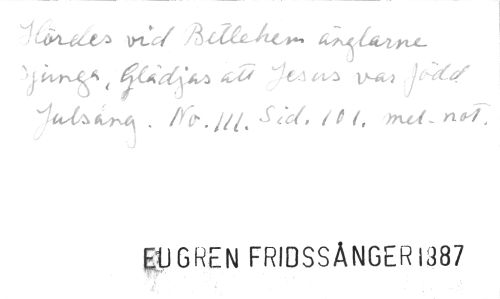 Hördes vid Betlehem änglarne
sjunga, Glädjas att Jesus var född.
Julsång. No. 111. Sid. 101. mel. not.
EUGREN FRIDSSÅNGER 1887